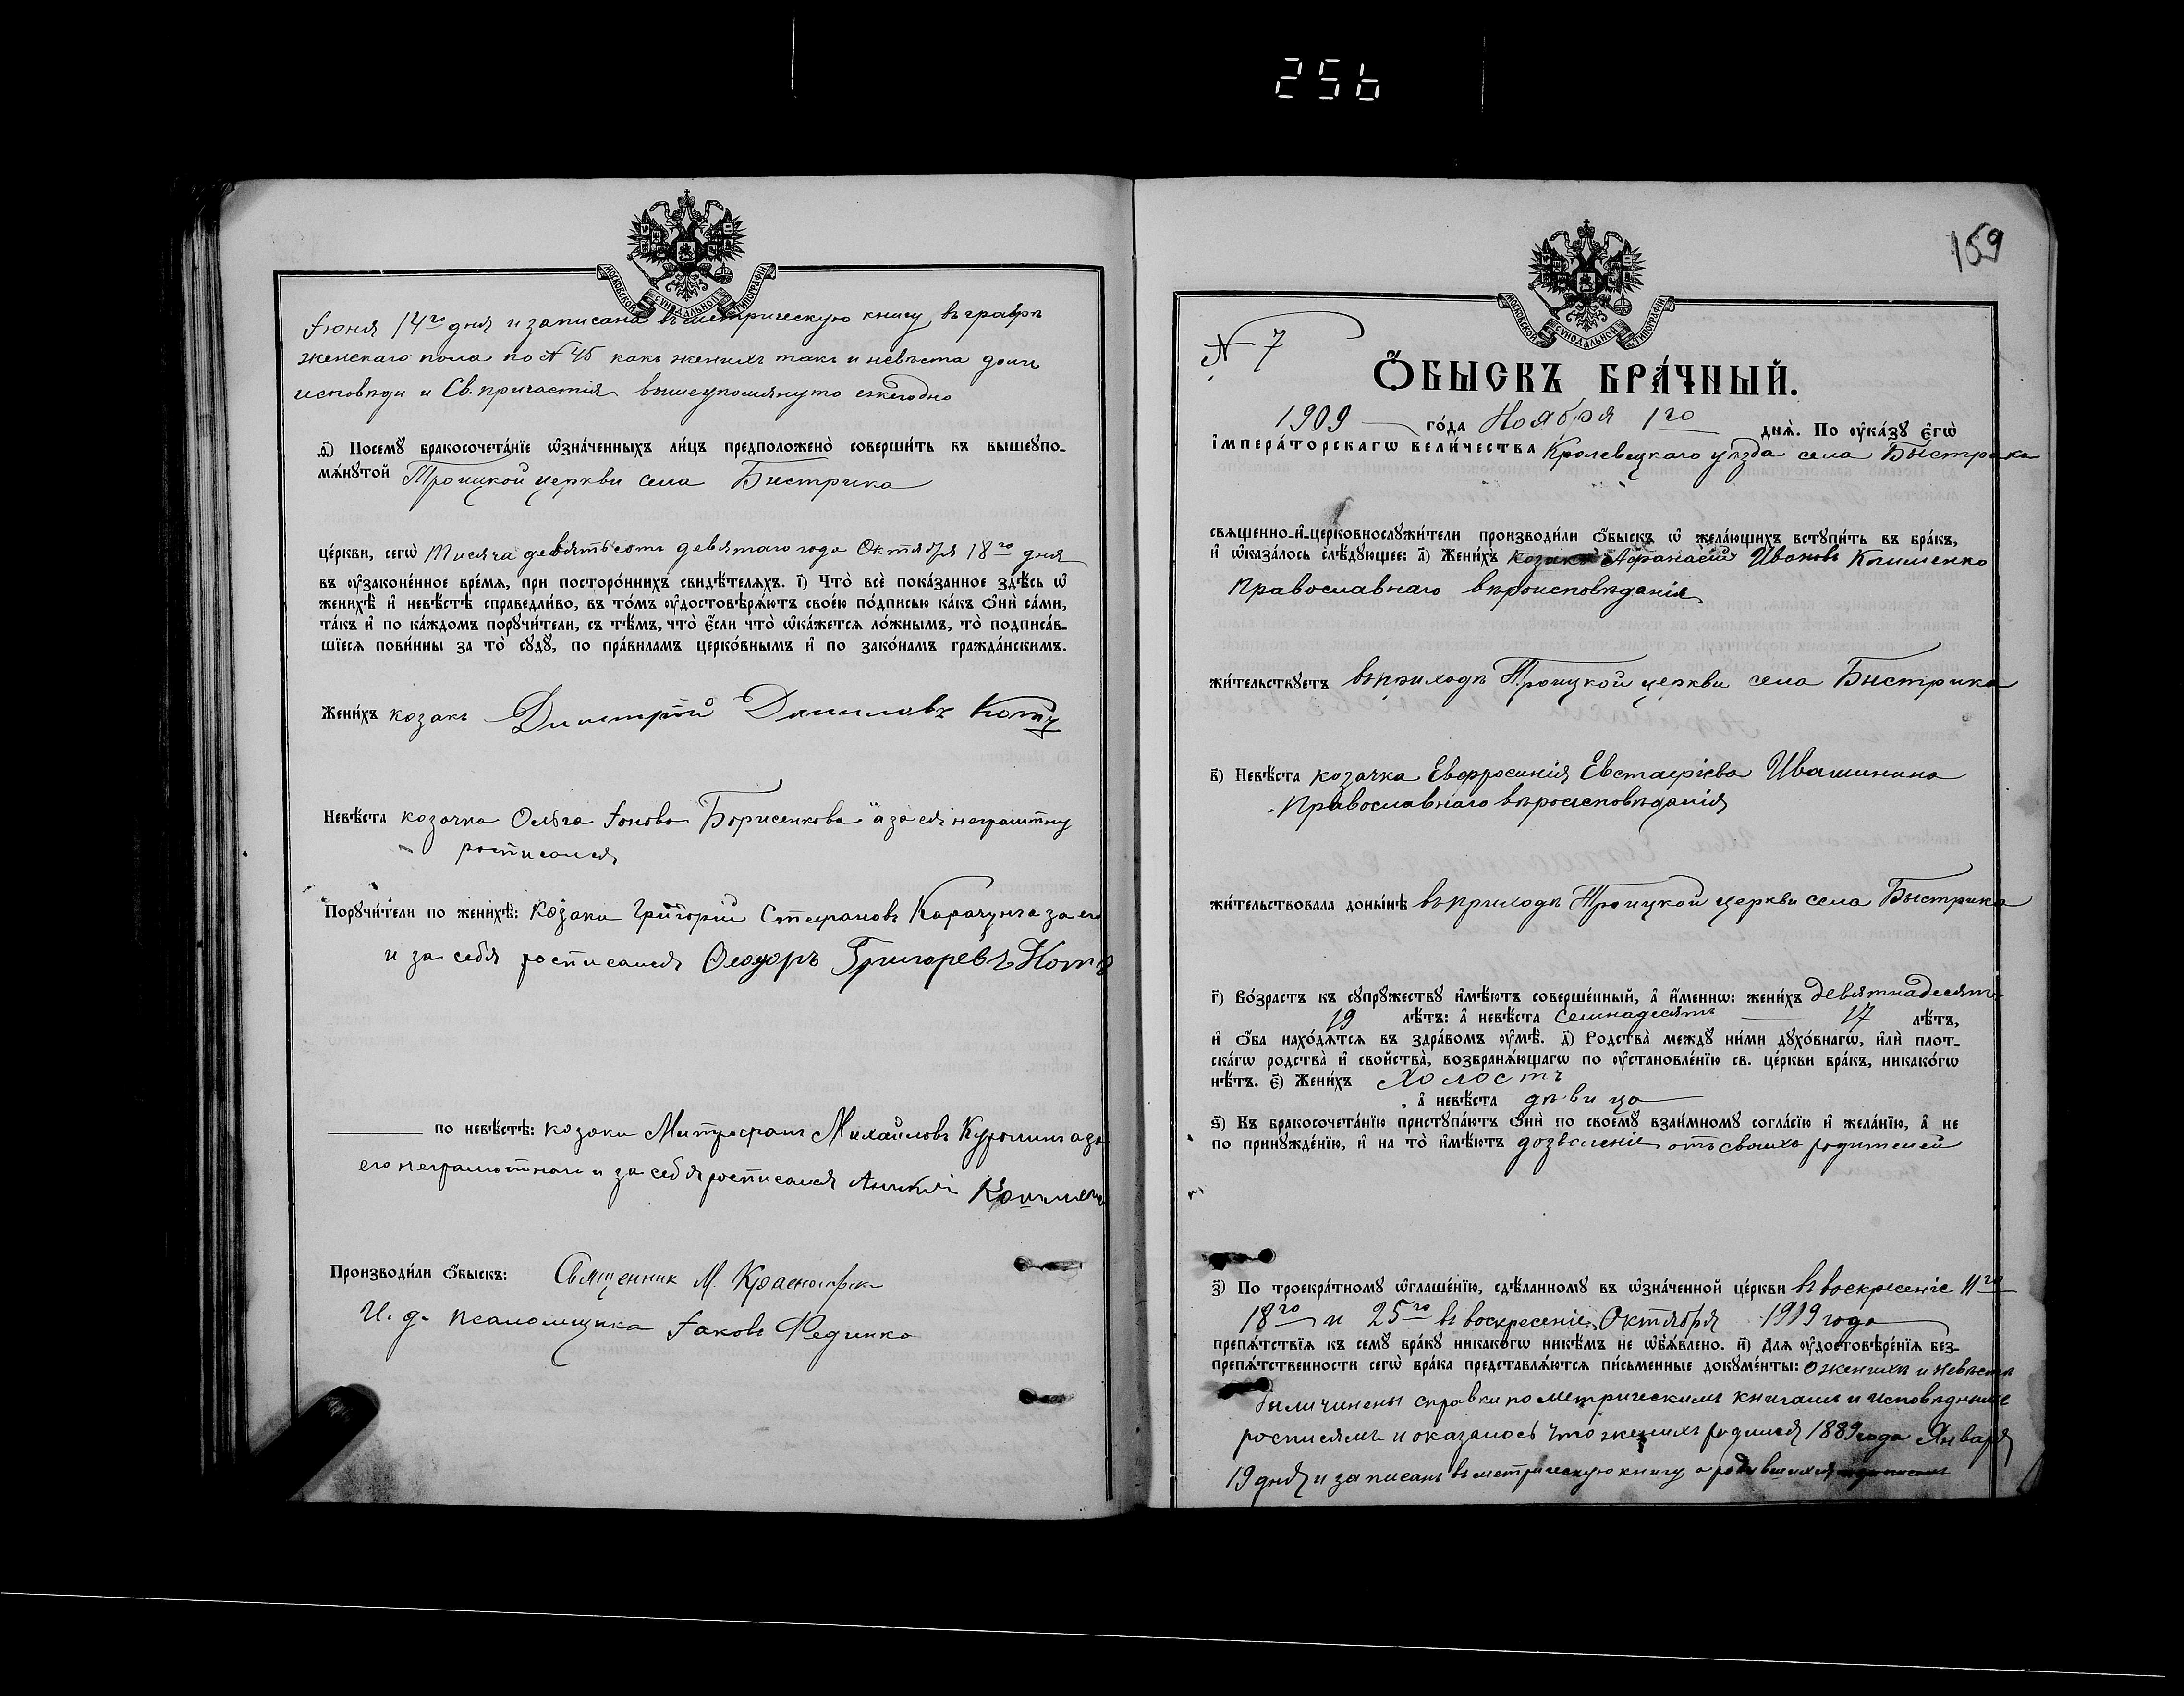 256
МОСКОВСКОЙ СѴНОДАЛЬНОЙ ТИПОГРАФІИ
Іюня 14го дня и записана въ метрическую книгу, въ графѣ
женскаго пола по № 45 какъ женихъ такъ и невѣста
исповѣди и Св. причастія вышеупомянуто ежегодно
ѳ҃) Посемꙋ̀ бракосочета́нїе ѡ҆зна́ченныхъ ли́цъ предположено̀ соверши́ть въ вышеꙋпо-
мѧ́нꙋтой Троицкой церкви села Быстрика
це́ркви, сегѡ̀ тысяча девятьсотъ девятаго года Октября 18го дня
въ ᲂу҆законе́нное вре́мѧ, при посторо́ннихъ свидѣ́телѧхъ. і҃) Что̀ всѐ пока́занное здѣ́сь ѡ҆
женихѣ̀ и҆ невѣ́стѣ справедли́во, въ то́мъ ᲂу҆достовѣрѧ́ютъ свое́ю по́дписью ка́къ ѻ҆нѝ са́ми,
та́къ и҆ по ка́ждомъ порꙋчи́тели, съ тѣ́мъ, что̀ є҆́сли что̀ ѡ҆ка́жетсѧ ло́жнымъ, то̀ подписа́в-
шїесѧ пови́нны за то̀ сꙋдꙋ̀, по пра́виламъ церко́внымъ и҆ по зако́намъ гражда́нскимъ.
Жени́хъ козакъ Димитрій Даниловъ Котъ
Невѣ́ста козачка Ольга Іонова Борисенкова а за ея неграмотну
росписался
Порꙋчи́тели по женихѣ̀: Козаки Григорій Стефановъ Карачунъ а за его
и за себя росписался Ѳеодоръ Григорьевъ Котъ
по невѣ́стѣ: козаки Митрофанъ Михайловъ а за
его неграмотнаго и за себя росписался
Производи́ли ѻ҆́быскъ: Священник М.
И. д. псаломщика Іаковъ Фединко
159
МОСКОВСКОЙ СѴНОДАЛЬНОЙ ТИПОГРАФІИ
№ 7
Ѻ҆́БЫСКЪ БРА́ЧНЫЙ.
1909 го́да Ноября 1го днѧ̀. По ᲂу҆ка́зꙋ Є҆гѡ̀
І҆мпера́торскагѡ вели́чества Кролевецкаго уѣзда села Быстрика
свѧще́нно-и҆-церковнослꙋжи́тели производи́ли ѻ҆́быскъ ѡ҆ жела́ющихъ встꙋпи́ть въ бра́къ,
и҆ ѡ҆каза́лось слѣ́дꙋющее: а҃) Жени́хъ козакъ Афанасій Ивановъ Клименко
Православнаго вѣроисповѣданія
жи́тельствꙋетъ въ приходѣ Троицкой церкви села Быстрика
в҃) Невѣ́ста козачка Евфросинія Евстафіева Ивашинина
Православнаго вѣроисповѣданія
жи́тельствовала доны́нѣ въ приходѣ Троицкой церкви села Быстрика
г҃) Во́зрастъ къ сꙋпрꙋ́жествꙋ и҆мѣ́ютъ соверше́нный, а҆ и҆́меннѡ: жени́хъ девятнадесять
19 лѣ́тъ: а҆ невѣ́ста семнадесять 17 лѣ́тъ,
и҆ ѻ҆́ба нахо́дѧтсѧ въ здра́вомъ ᲂу҆мѣ̀. д҃) Родства̀ междꙋ̀ ни́ми дꙋхо́внагѡ, и҆лѝ плот-
ска́гѡ родства̀ и҆ свойства̀, возбранѧ́ющагѡ по ᲂу҆становле́нїю св. це́ркви бра́къ, никако́гѡ
нѣ́тъ. є҃) Жени́хъ Холостъ
, а҆ невѣ́ста дѣвица
ѕ҃) Къ бракосочета́нїю пристꙋпа́ютъ ѻ҆нѝ по своемꙋ̀ взаи́мномꙋ согла́сїю и҆ жела́нїю, а҆ не
по принꙋжде́нїю, и҆ на то̀ и҆мѣ́ютъ дозволеніе отъ своихъ родителей
з҃) По троекра́тномꙋ ѡ҆глаше́нїю, сдѣ́ланномꙋ въ ѡ҆зна́ченной це́ркви въ воскресеніе 11го
18го и 25го въ воскресеніе, Октября 1909 года
препѧ́тствїѧ къ семꙋ̀ бра́кꙋ никако́гѡ никѣ́мъ не ѡ҆б̾ѧ́влено. и҃) Длѧ ᲂу҆достовѣре́нїѧ без-
препѧ́тственности сегѡ̀ бра́ка представлѧ́ютсѧ пи́сьменные докꙋме́нты: о женихѣ и невѣстѣ
были чинены справки по метрическимъ книгамъ и исповѣднымъ
росписямъ и оказалось что женихъ родился 1889 года Января
19 дня и записанъ въ метрическую книгу о родившихся